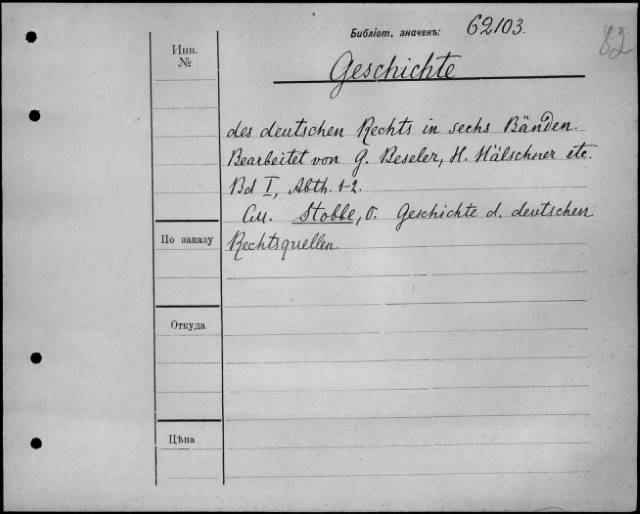 Библіот. значекъ: 62103.
82
Инв.
№
Geschichte
des deutschen Rechts in sechs Bänden.
Bearbeitet von G. Beseler, H. Hälschner etc.
Bd I, Abth. 1-2.
См. Stobbe, O. Geschichte d. deutschen
По заказу
Rechtsquellen.
Откуда
Цѣна